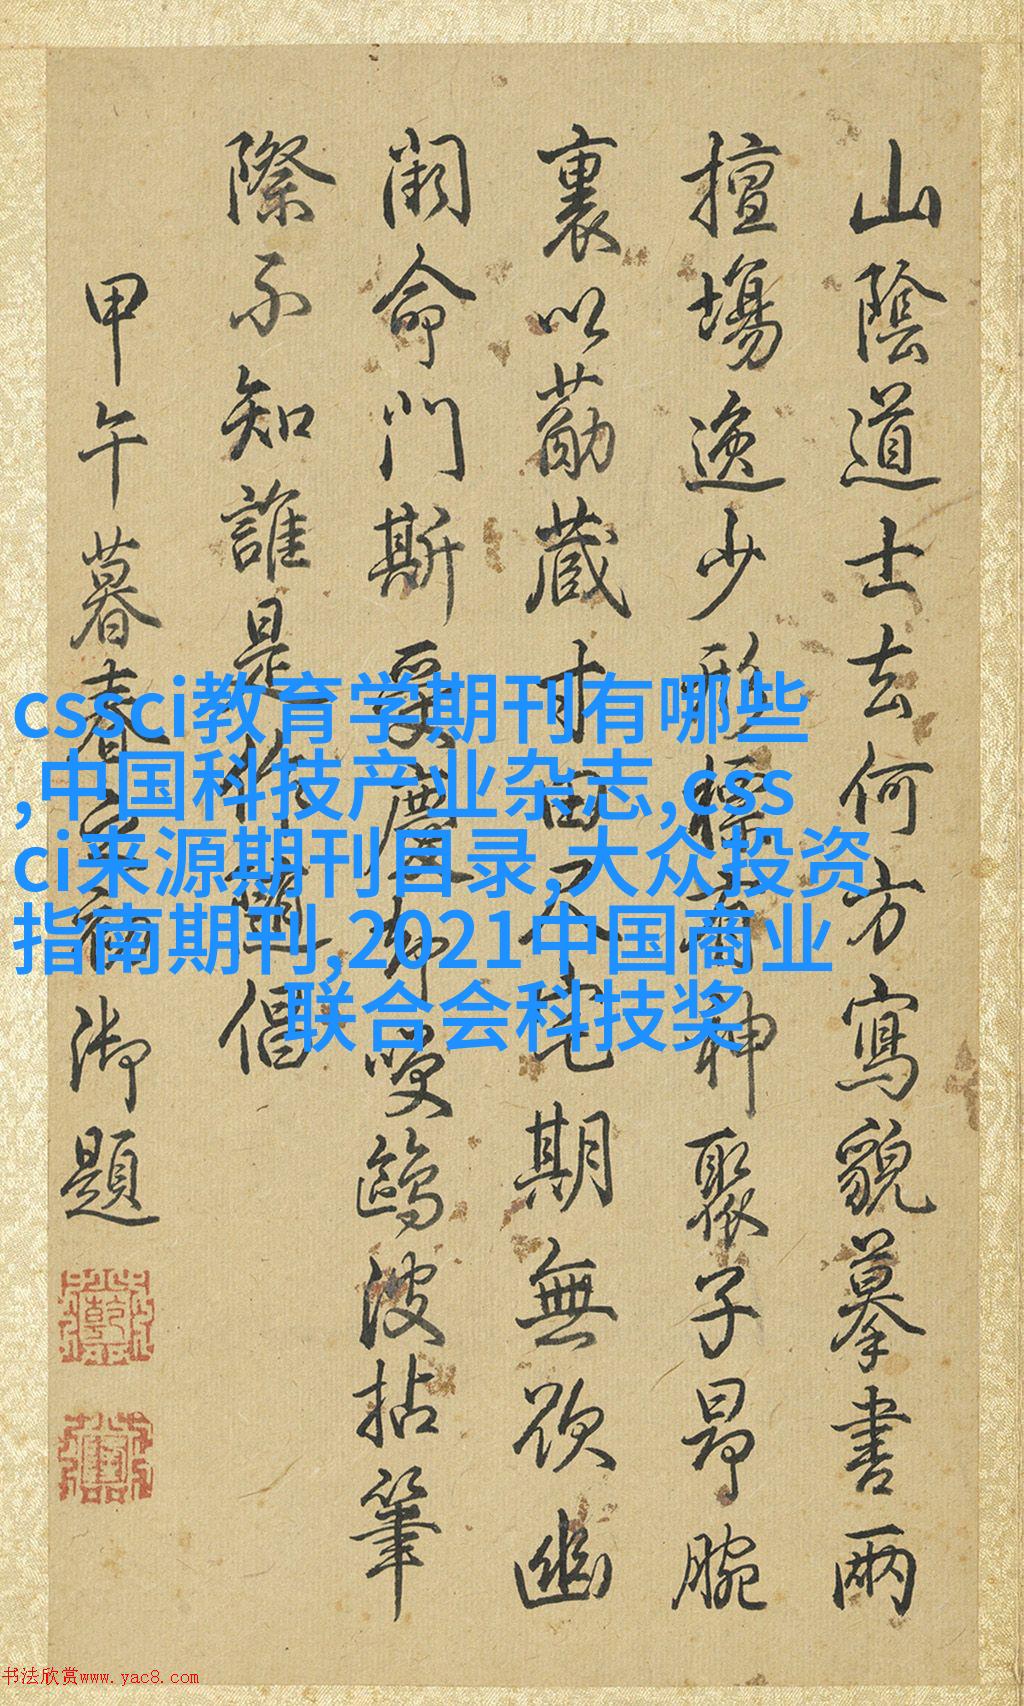 山陰道士去何方寫貌摹書兩
擅場逸少形神聚子昂腕
裏以藏寸田尺宅期無欲幽
闕命門斯受鷗波拈筆
際不知誰是倡
甲午暮春御題
cssci教育学期刊有哪些
,中国科技产业杂志,css
ci来源期刊目录,大众投资
指南期刊,2021中国商业
联合会科技奖
书法欣赏www.yac8.com